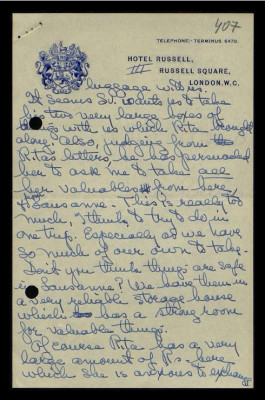 407
TELEPHONE:- TERMINUS 6470.
HOTEL RUSSELL,
III RUSSELL SQUARE,
LONDON, W.C.
luggage with us.
It seems St. wants us to take
his two very large boxes of
things with us which Rita brought
along. Also, judging from the
Rita's letters, he has persuaded
her to ask me to take all
her valuables from here,
to Lausanne. This is really too
much, I think, to try to do in
one trip. Especially as we have
so much of our own to take.
Don't you think things are safe
in Lausanne? We have them in
a very reliable storage house
which has a strong room
for valuable things.
Of course Rita has a very
large amount of Ps. here
which she is anxious to exchange